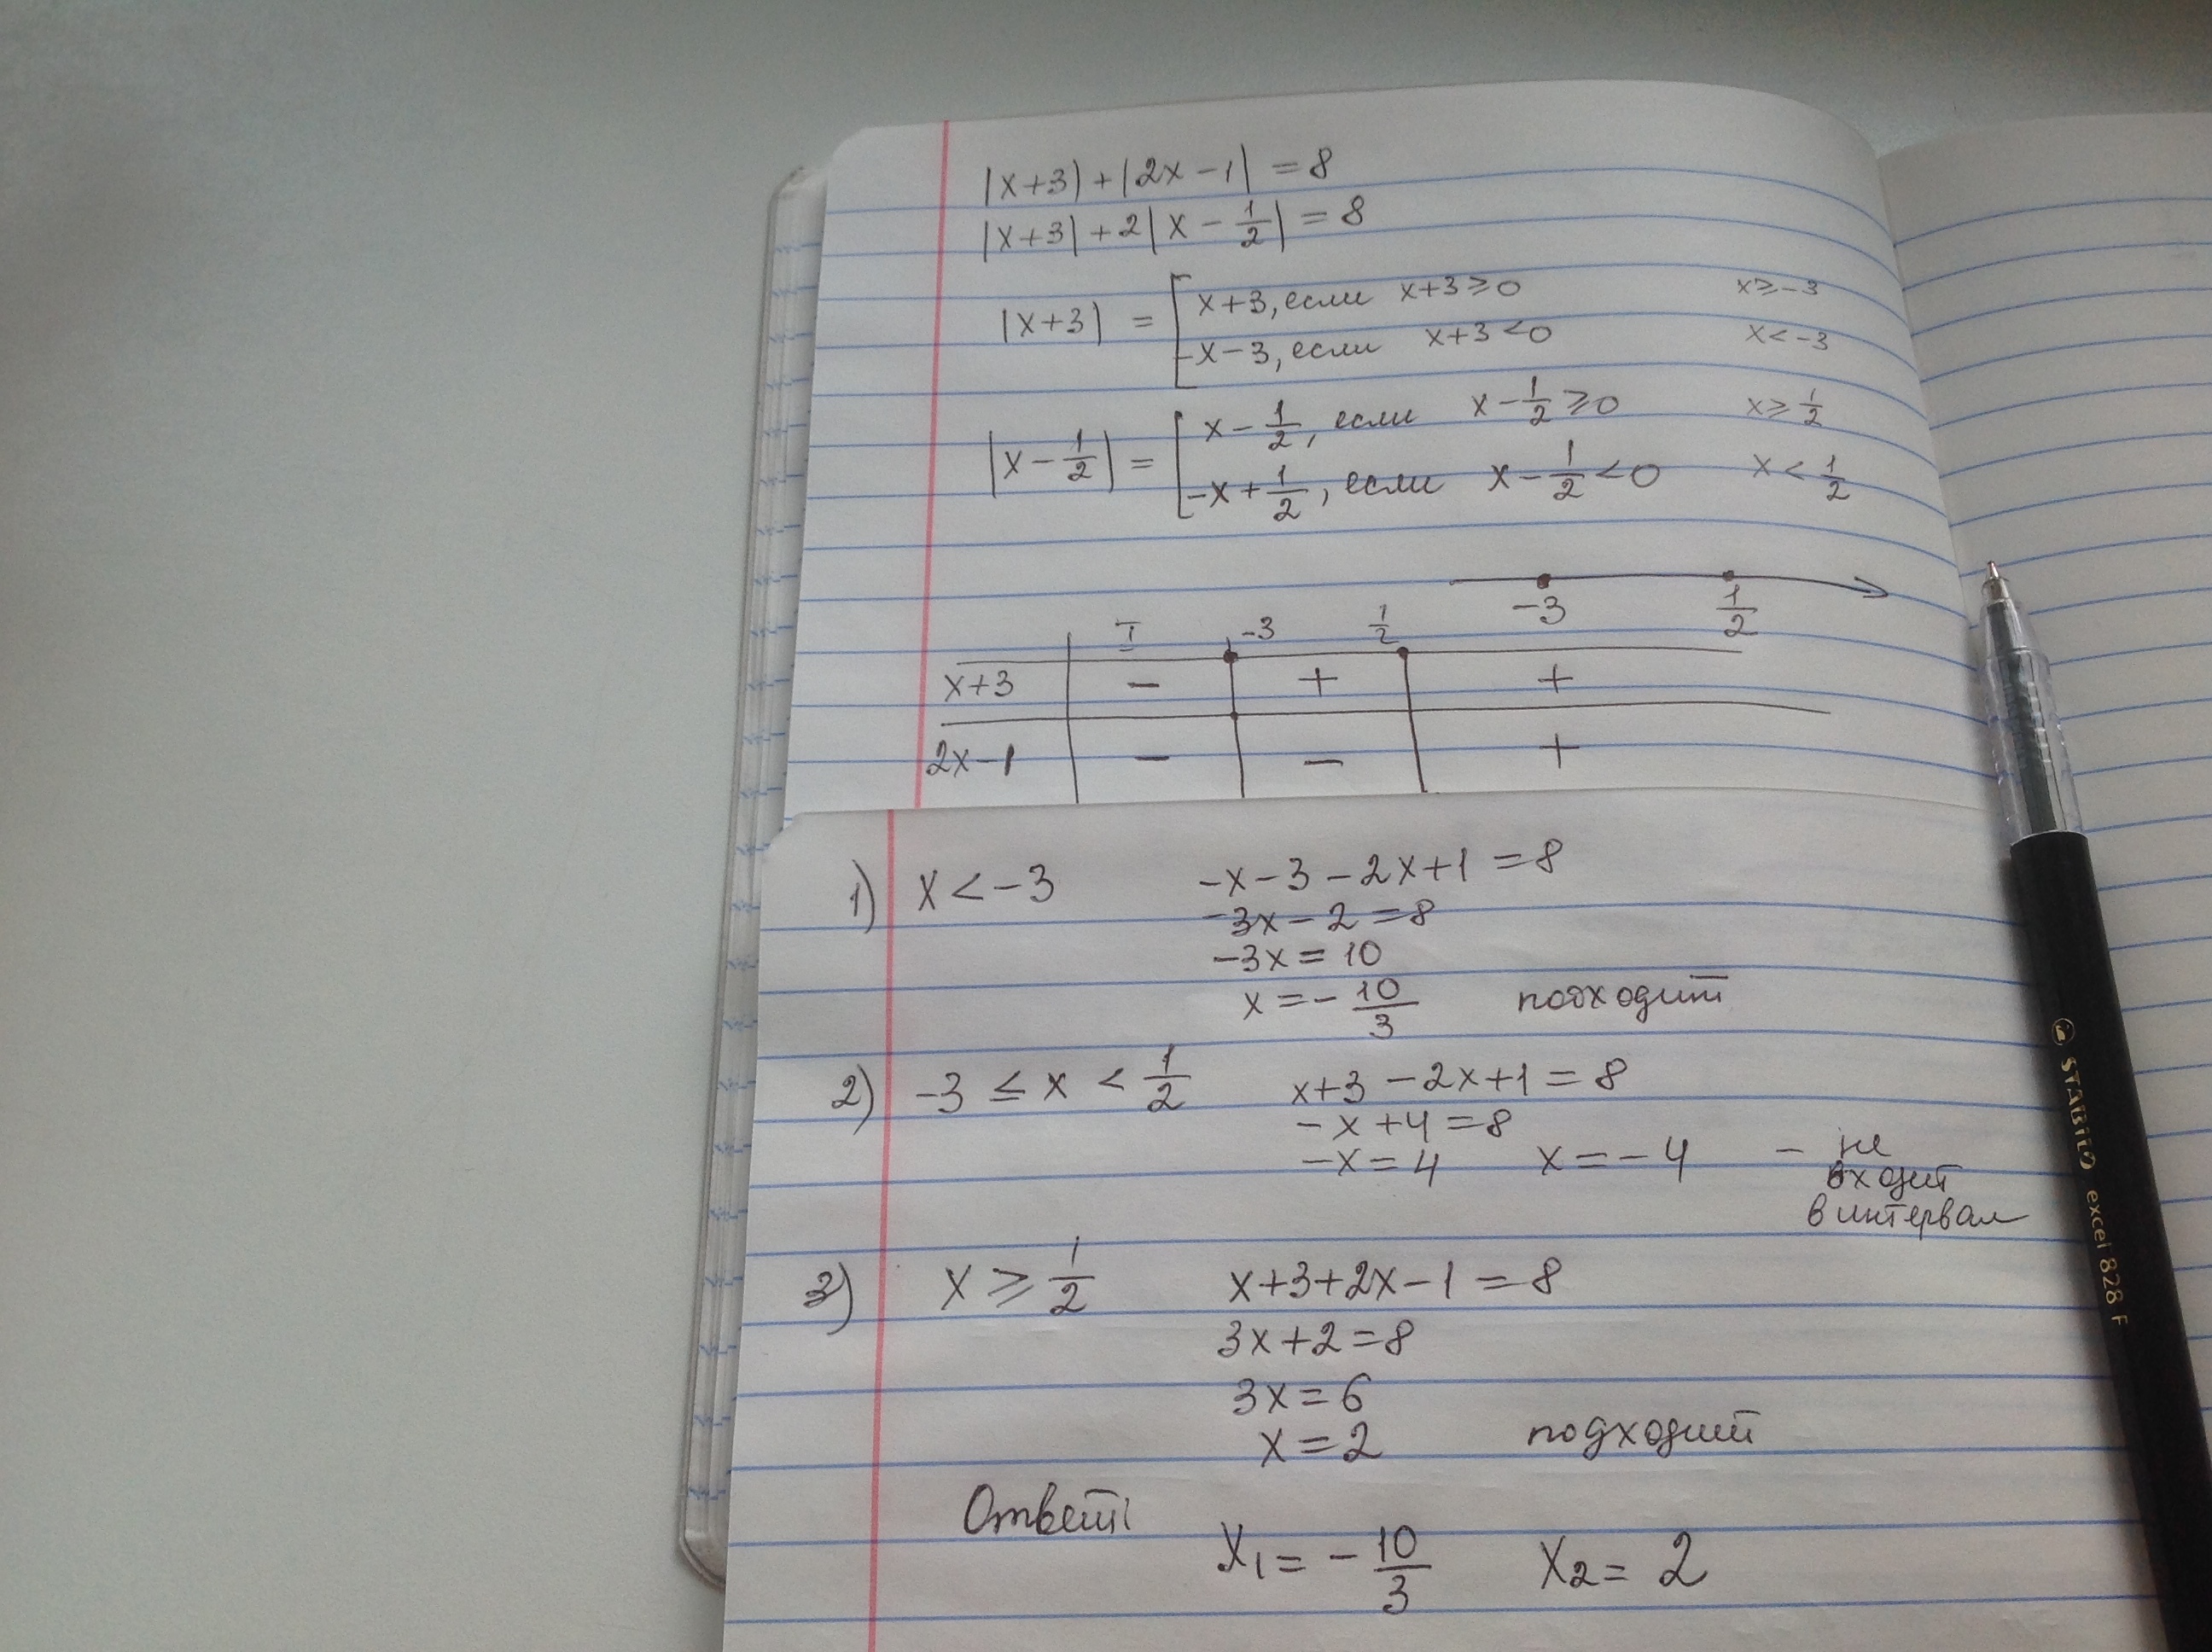 |x+3|+|2x-1|=8
|x+3|+2|x-1/2|=8
|x+3| = [x+3, если x+3≥0 x≥-3
-x-3, если x+3<0 x<-3
|x-1/2| = [x-1/2, если x-1/2≥0 x≥1/2
-x+1/2, если x-1/2<0 x<1/2
-3 1/2
I -3 1/2
x+3 - + +
2x-1 - - +
1) x<-3 -x-3-2x+1=8
-3x-2=8
-3x=10
x=-10/3 подходит
2) -3≤x<1/2 x+3-2x+1=8
-x+4=8
-x=4 x=-4 - не
входит
в интервал
3) x≥1/2 x+3+2x-1=8
3x+2=8
3x=6
x=2 подходит
Ответ:
x1=-10/3 x2=2
STABILO excel 828 F